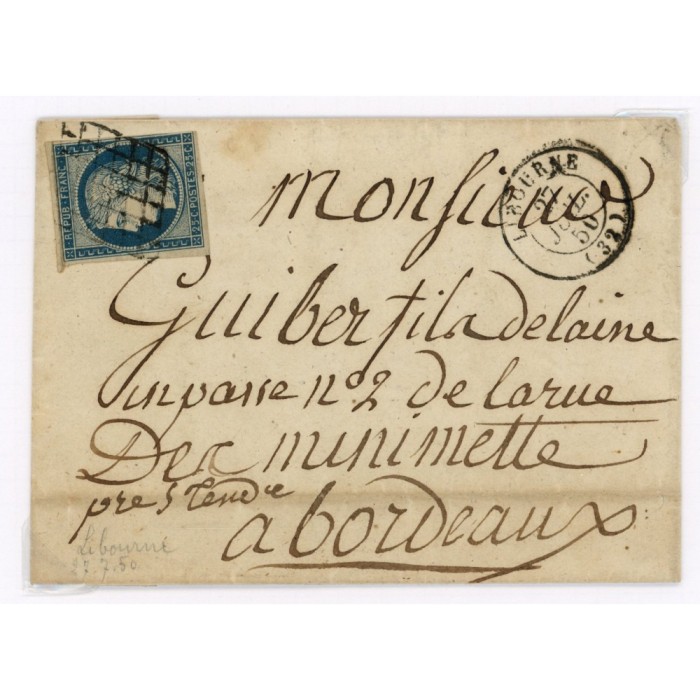 REPUB. FRANC.
25 C. POSTES 25 C.
LIBOURNE
27
JUIL.
50
(32)
Monsieur
Guiber fils de laine
inpasse no2 de larue
Des minimette
pre St Tendre
a bordeaux
Libourne
27.7.50